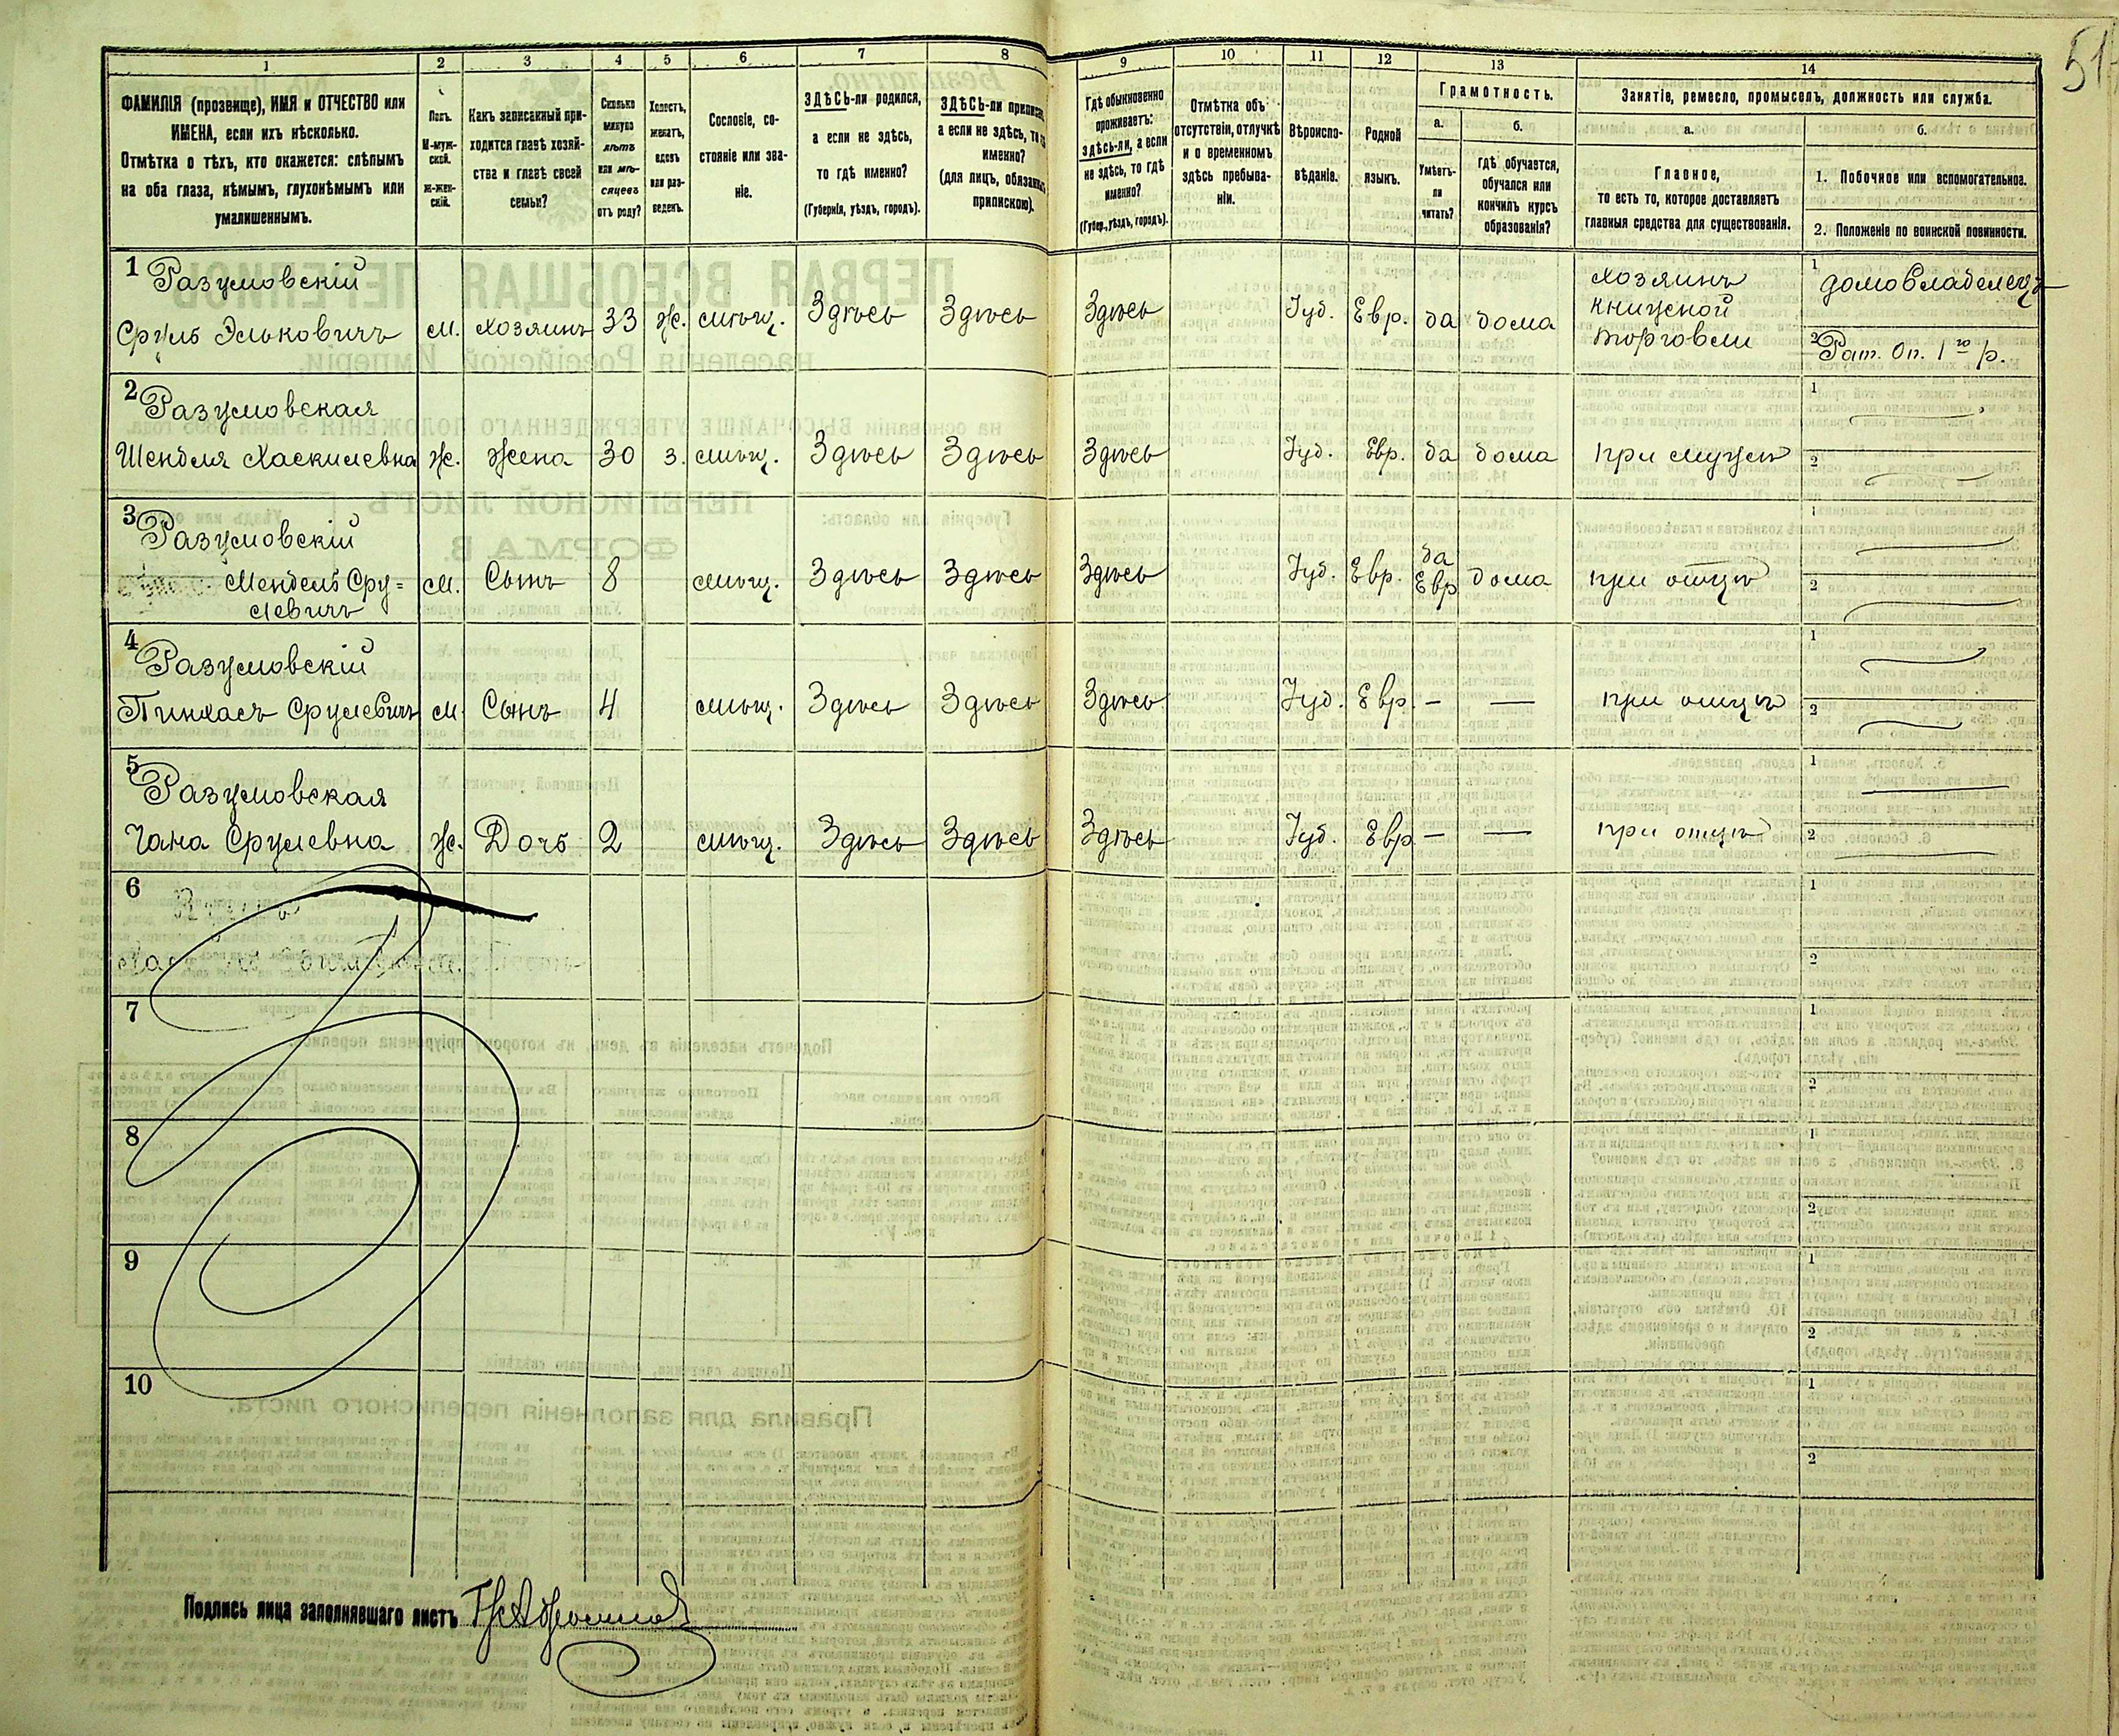 51
1 2 3 4 5 6 7 8 9 10 11 12 13 14
ФАМИЛІЯ (прозвище), ИМЯ и ОТЧЕСТВО или
ИМЕНА, если ихъ нѣсколько.
Отмѣтка о тѣхъ, кто окажется: слѣпымъ
на оба глаза, нѣмымъ, глухонѣмымъ или
умалишеннымъ.
Полъ.
М-муж-
ской.
Ж-жен-
скій.
Какъ записанный при-
ходится главѣ хозяй-
ства и главѣ своей
семьи?
Сколько
минуло
лѣтъ
или мѣ-
сяцевъ
отъ роду?
Холостъ,
женатъ,
вдовъ
или раз-
веденъ.
Сословіе, со-
стояніе или зва-
ніе.
ЗДѢСЬ-ли родился,
а если не здѣсь,
то гдѣ именно?
(Губернія, уѣздъ, городъ).
ЗДѢСЬ-ли приписанъ,
а если не здѣсь, то гдѣ
именно?
(для лицъ, обязанныхъ
припискою).
Гдѣ обыкновенно
проживаетъ:
здѣсь-ли, а если
не здѣсь, то гдѣ
именно?
(Губер., уѣздъ, городъ).
Отмѣтка объ
отсутствіи, отлучкѣ
и о временномъ
здѣсь пребыва-
ніи.
Вѣроиспо-
вѣданіе.
Родной
языкъ.
Грамотность.
а.
Умѣетъ-
ли
читать?
б.
Гдѣ обучается,
обучался или
кончилъ курсъ
образованія?
Занятіе, ремесло, промыселъ, должность или служба.
а.
Главное,
то есть то, которое доставляетъ
главныя средства для существованія.
б.
1. Побочное или вспомогательное.
2. Положеніе по воинской повинности.
1 Разумовскій
Сруль Эльковичъ м. хозяинъ 33 ж. мѣщ. Здѣсь Здѣсь Здѣсь Іуд. Евр. да дома
хозяинъ
книжной
торговли
1 домовладелецъ
2 Рат. Оп. 1го р.
2 Разумовская
Шендля Хаскилевна ж. жена 30 з. мѣщ. Здѣсь Здѣсь Здѣсь Іуд. Евр. да дома при мужѣ
1
2
3 Разумовскій
Мендель Сру=
левичъ м. Сынъ 8 мѣщ. Здѣсь Здѣсь Здѣсь Іуд. Евр. да
Евр дома при отцѣ
1
2
4 Разумовскій
Пинхасъ Срулевичъ м. Сынъ 4 мѣщ. Здѣсь Здѣсь Здѣсь Іуд. Евр. — — при отцѣ
1
2
5 Разумовская
Чана Срулевна ж. Дочь 2 мѣщ. Здѣсь Здѣсь Здѣсь Іуд. Евр — — при отцѣ
1
2
6
1
2
7
1
2
8
1
2
9
1
2
10
1
2
Подпись лица заполнявшаго листъ